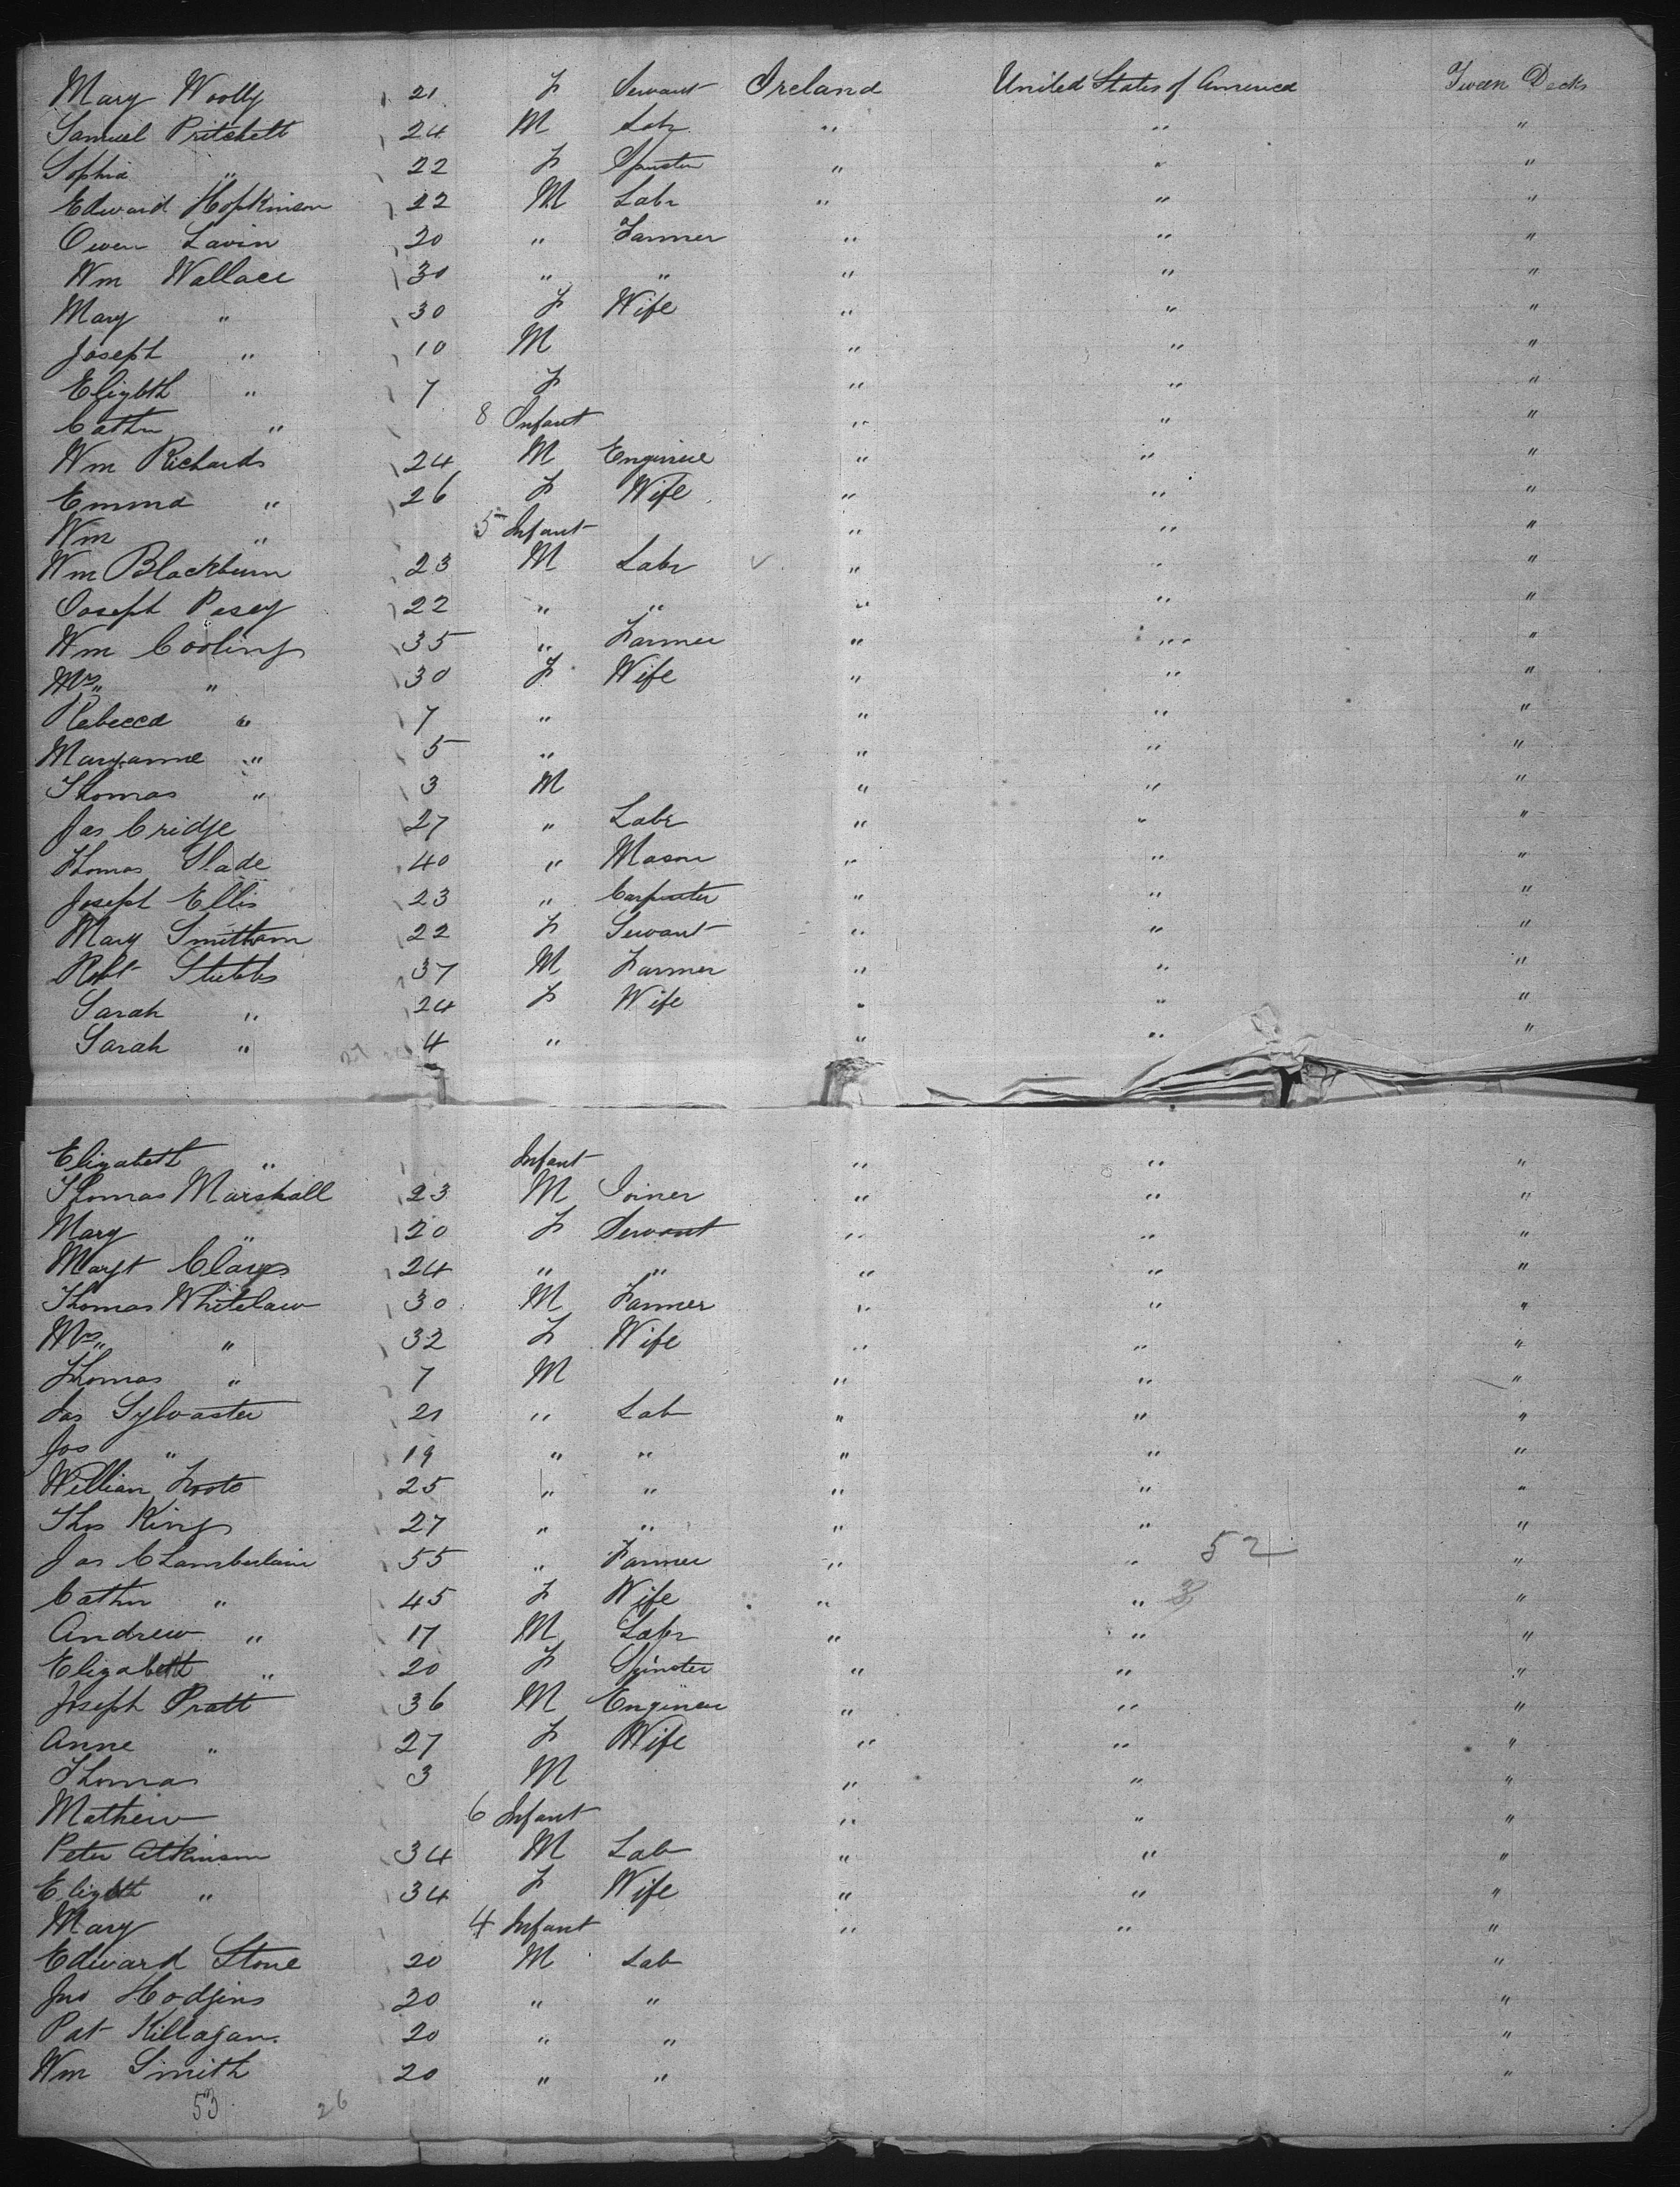 Mary Woolly 21 F Servant Ireland United States of America Tween Decks
Samuel Pritchett 24 M Labr " " "
Sophia " 22 F Spinster " " "
Edward Hopkinson 22 M Labr " " "
Owen Lavin 20 " Farmer " " "
Wm Wallace 30 " " " " "
Mary " 30 F Wife " " "
Joseph " 10 M " " "
Elizbth " 7 F " " "
Cathn " 8 Infant " " "
Wm Richards 24 M Engineer " " "
Emma " 26 F Wife " " "
Wm " 5 Infant " " "
Wm Blackburn 23 M Labr " " "
Joseph Posey 22 " " " " "
Wm Cooling 35 " Farmer " " "
Mrs " 30 F Wife " " "
Rebecca " 7 " " " "
Maryanne " 5 " " " "
Thomas " 3 M " " "
Jas Cridge 27 " Labr " " "
Thomas Slade 40 " Mason " " "
Joseph Ellis 23 " Carpenter " " "
Mary Smitham 22 F Servant " " "
Robt Stubbs 37 M Farmer " " "
Sarah " 24 F Wife " " "
Sarah " 4 " " " "
27
Elizabeth " Infant " " "
Thomas Marshall 23 M Joiner " " "
Mary " 20 F Servant " " "
Margt 24 " " " " "
Thomas Whitelaw 30 M Farmer " " "
Mrs " 32 F Wife " " "
Thomas " 7 M " " "
Jas Sylvaster 21 " Lab " " "
Jos " 19 " " " " "
William Foote 25 " " " " "
Thos King 27 " " " " "
Jas Chamberlain 55 " Farmer " " 52 "
Cathn " 45 F Wife " " 3 "
Andrew " 17 M Labr " " "
Elizabeth " 20 F Spinster " " "
Joseph Pratt 36 M Engineer " " "
Anne " 27 F Wife " " "
Thomas 3 M " " "
Mathew 6 Infant " " "
Peter Atkinson 34 M Lab " " "
Elizbth " 34 F Wife " " "
Mary 4 Infant " " "
Edward Stone 20 M Lab "
Jno Hodgins 20 " " "
Pat Killagan. 20 " " "
Wm Smith 20 " " "
53 26